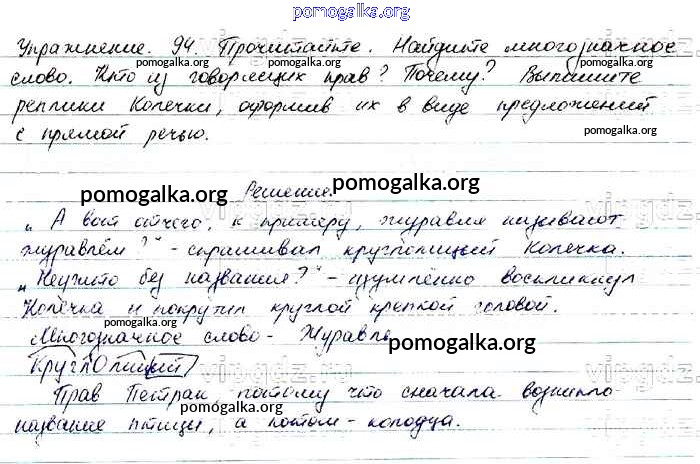 pomogalka.org
Упражнение. 94. Прочитайте. Найдите многозначное
слово. Кто из говорящих прав? Почему? Выпишите
реплики Колечки, оформив их в виде предложений
с прямой речью.
pomogalka.org
pomogalka.org
Решение.
pomogalka.org
pomogalka.org
„ А вот отчего, к примеру, журавля называют
журавлём?" - спрашивал круглолицый Колечка.
pomogalka.org
pomogalka.org
„ Неужто без названия?" - изумлённо воскликнул
Колечка и покрутил круглой крепкой головой.
pomogalka.org
Многозначное слово - Журавль
pomogalka.org
круглОлицый
Прав Петрак потому что сначала возникло
pomogalka.org
название птицы, а потом - колодца.
pomogalka.org